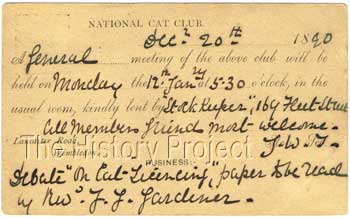 NATIONAL CAT CLUB.
Decr 20th 1890
A General meeting of the above club will be
held on Monday the 12th Jany at 5-30 o'clock, in the
usual room, kindly lent by Stock Keeper, 169 Fleet Street
All members friend most welcome.
Lancaster Road,
Wimbledon.
The History Project
BUSINESS:
Debate "on Cat-Licensing," paper to be read
by Revd J. G. Gardiner.